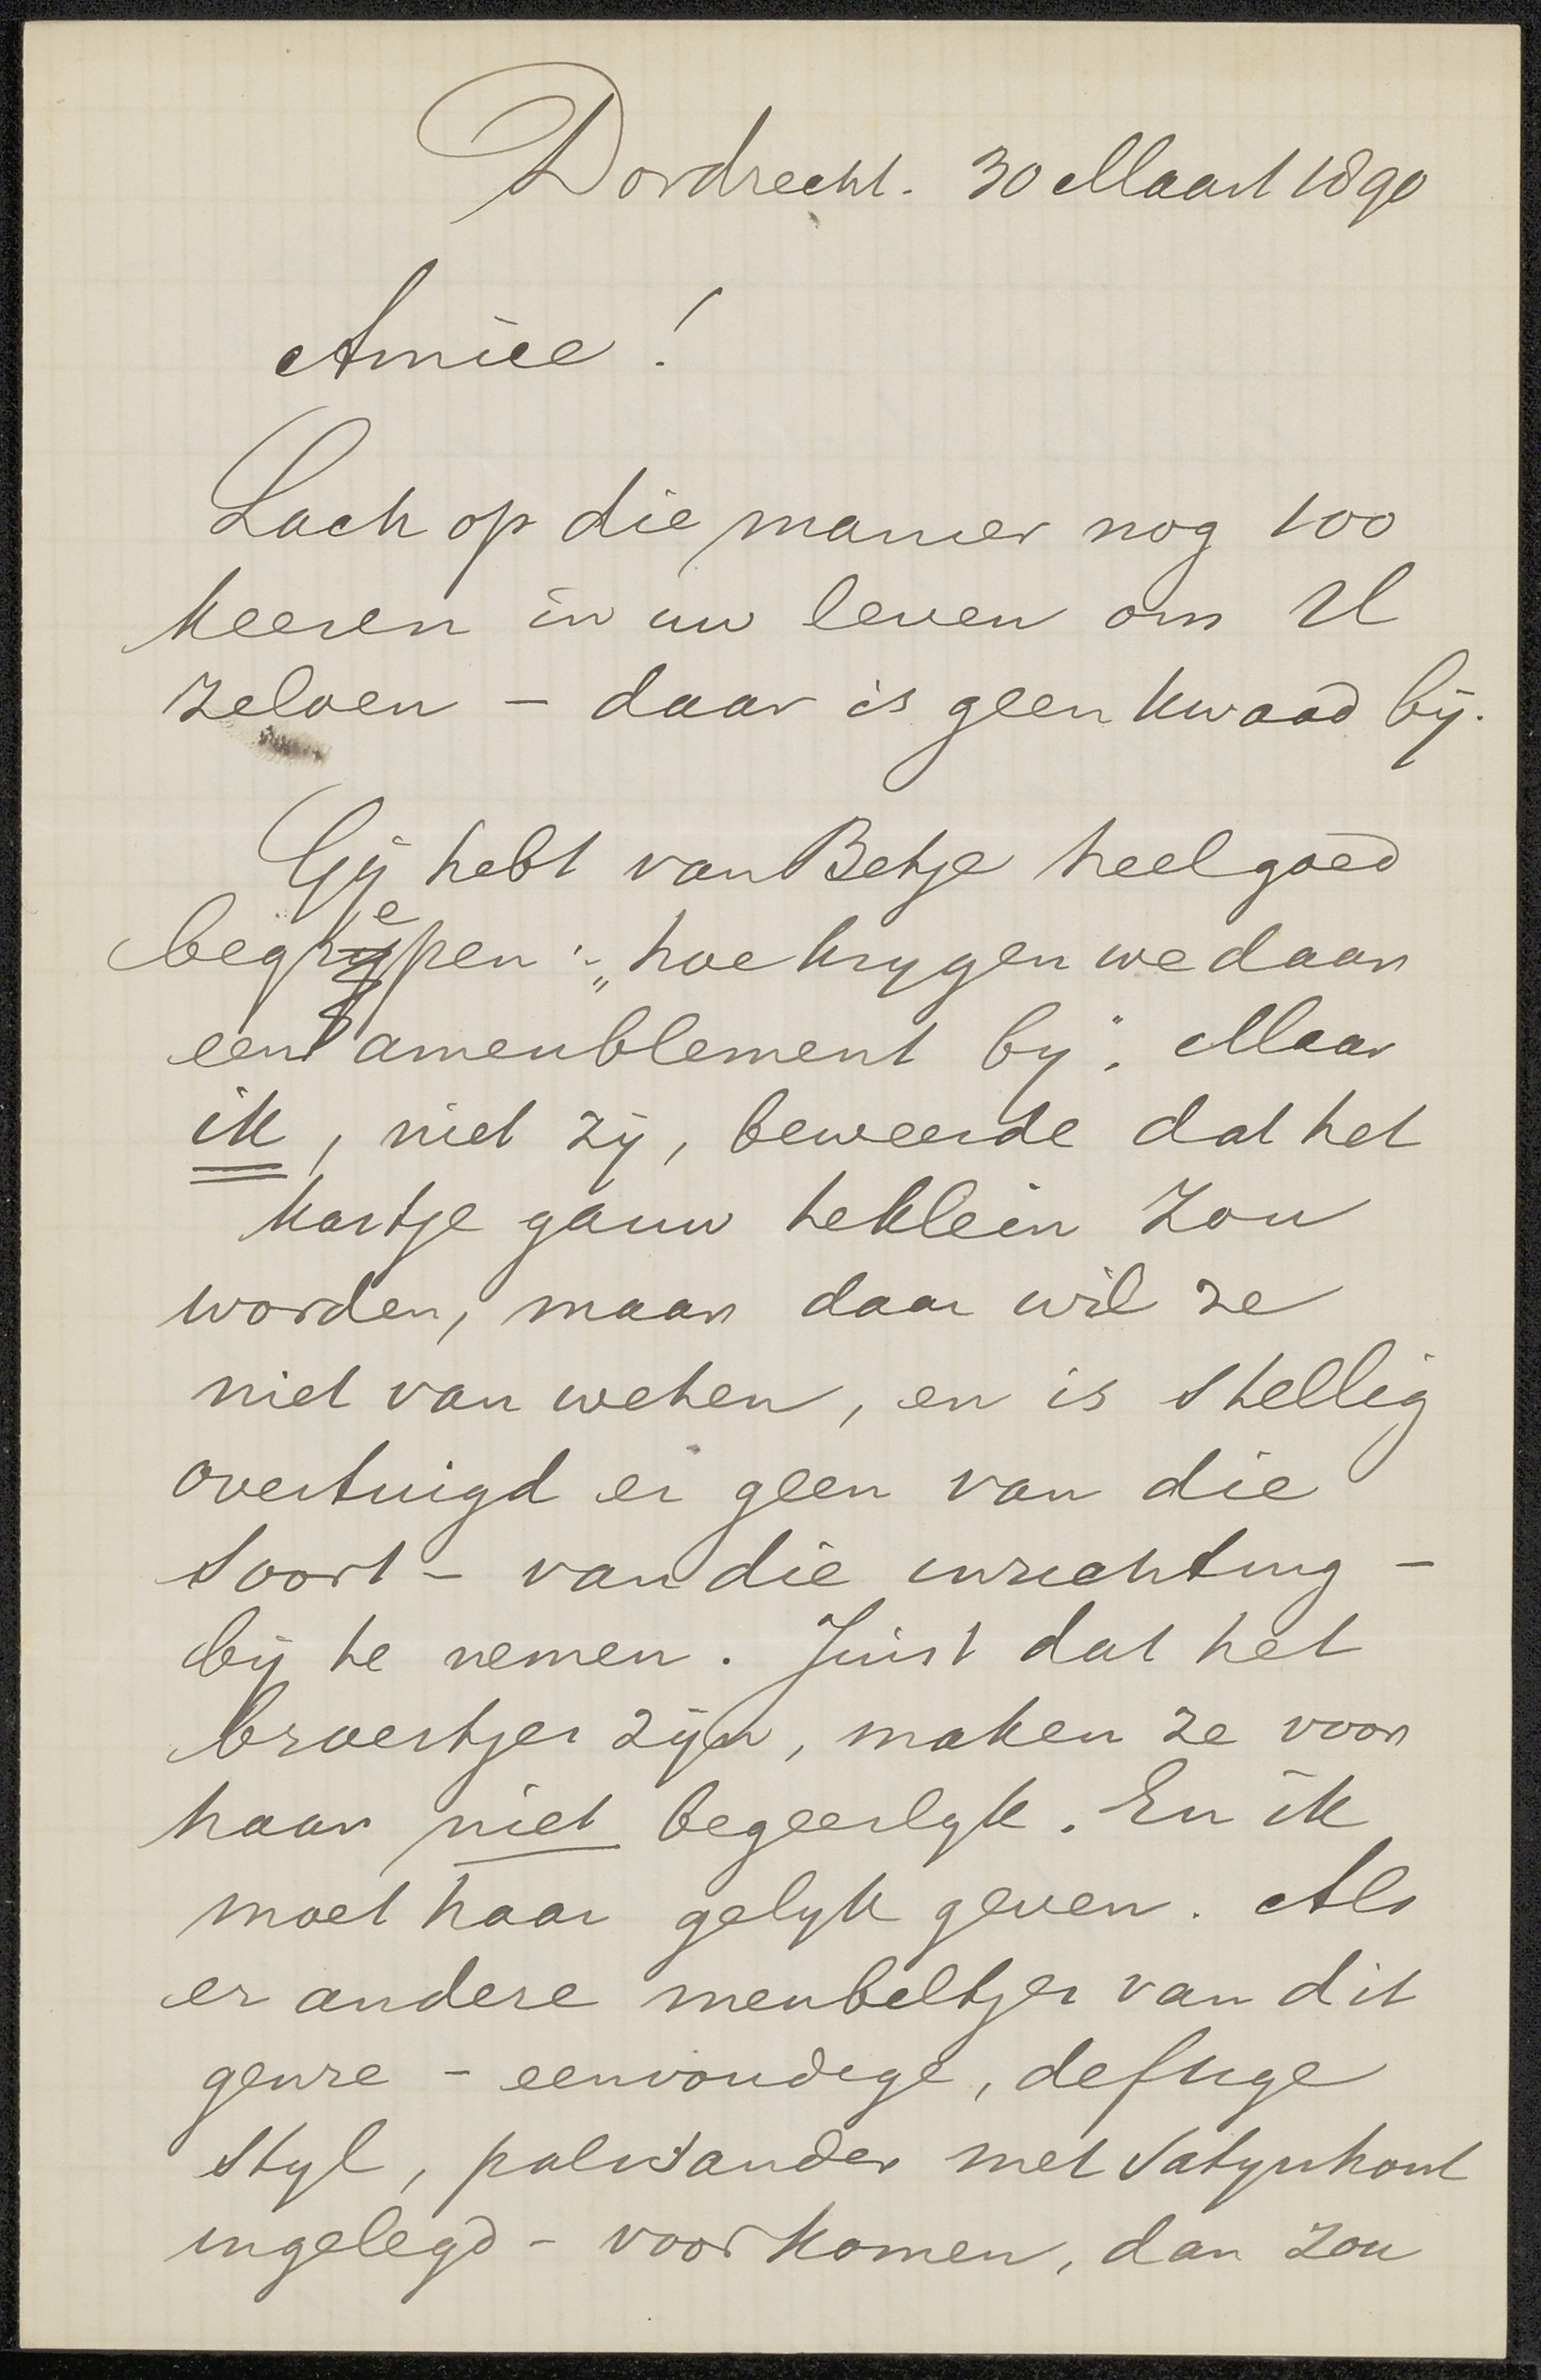 Dordrecht. 30 Maart 1890
Amice!
Lach op die manier nog 100
keeren in uw leven om U
zelven - daar is geen kwaad bij.
Gij hebt van Betje heel goed
begrepen: „hoe krygen we daar
een ameublement by". Maar
ik, niet zij, beweerde dat het
kastje gauw te klein zou
worden, maar daar wil ze
niet van weten, en is stellig
overtuigd er geen van die
soort - van die inrichting -
bij te nemen. Juist dat het
broertjes zijn, maken ze voor
haar niet begeerlyk. En ik
moet haar gelyk geven. Als
er andere meubeltjes van dit
genre - eenvoudige, deftige
styl, palissander met satynhout
ingelegd - voorkomen, dan zou